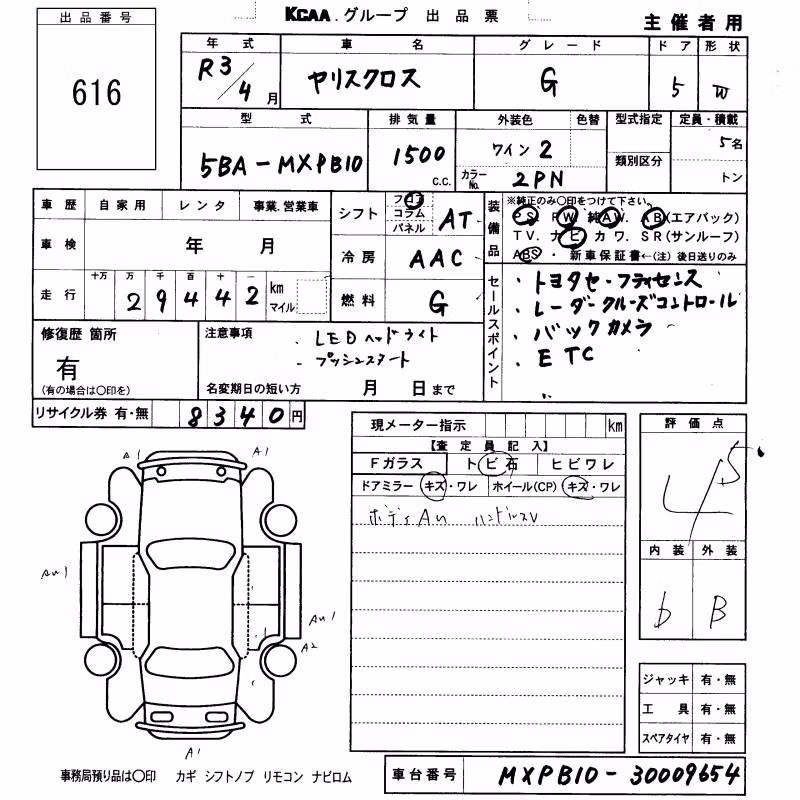 出品番号
616
KCAA グループ 出品票
主催者用
年式 車名 グレード ドア 形状
R3/4月 ヤリスクロス G 5 W
型式 排気量 外装色 色替 型式指定 定員・積載
5BA-MXPB10 1500 c.c. ワイン2 5名
類別区分
カラーNo. 2PN トン
車歴 自家用 レンタ 事業.営業車
車検 年 月
走行 十万 万 千 百 十 一
29442 km マイル
シフト フロア コラム パネル AT
冷房 AAC
燃料 G
装備品 ※純正のみ〇印をつけて下さい。
PS. PW. 純AW. AB(エアバック)
TV. ナビ カワ. SR(サンルーフ)
ABS・ 新車保証書←(注) 後日送りのみ
セールスポイント
・トヨタセーフティセンス
・レーダークルーズコントロール
・バックカメラ
・ETC
修復歴 箇所
有
(有の場合は〇印を)
注意事項
・LEDヘッドライト
・プッシュスタート
名変期日の短い方 月 日まで
リサイクル券 有・無 8340円
現メーター指示 km
【査定員記入】
Fガラス トビ石 ヒビワレ
ドアミラー キズ・ワレ ホイール(CP) キズ・ワレ
ボディAu ハンドルスレ
評価点
4.5
内装 外装
b B
A1 A1
Au1
Au1
A2
A1
ジャッキ 有・無
工具 有・無
スペアタイヤ 有・無
事務局預り品は〇印 カギ シフトノブ リモコン ナビロム
車台番号 MXPB10-30009654